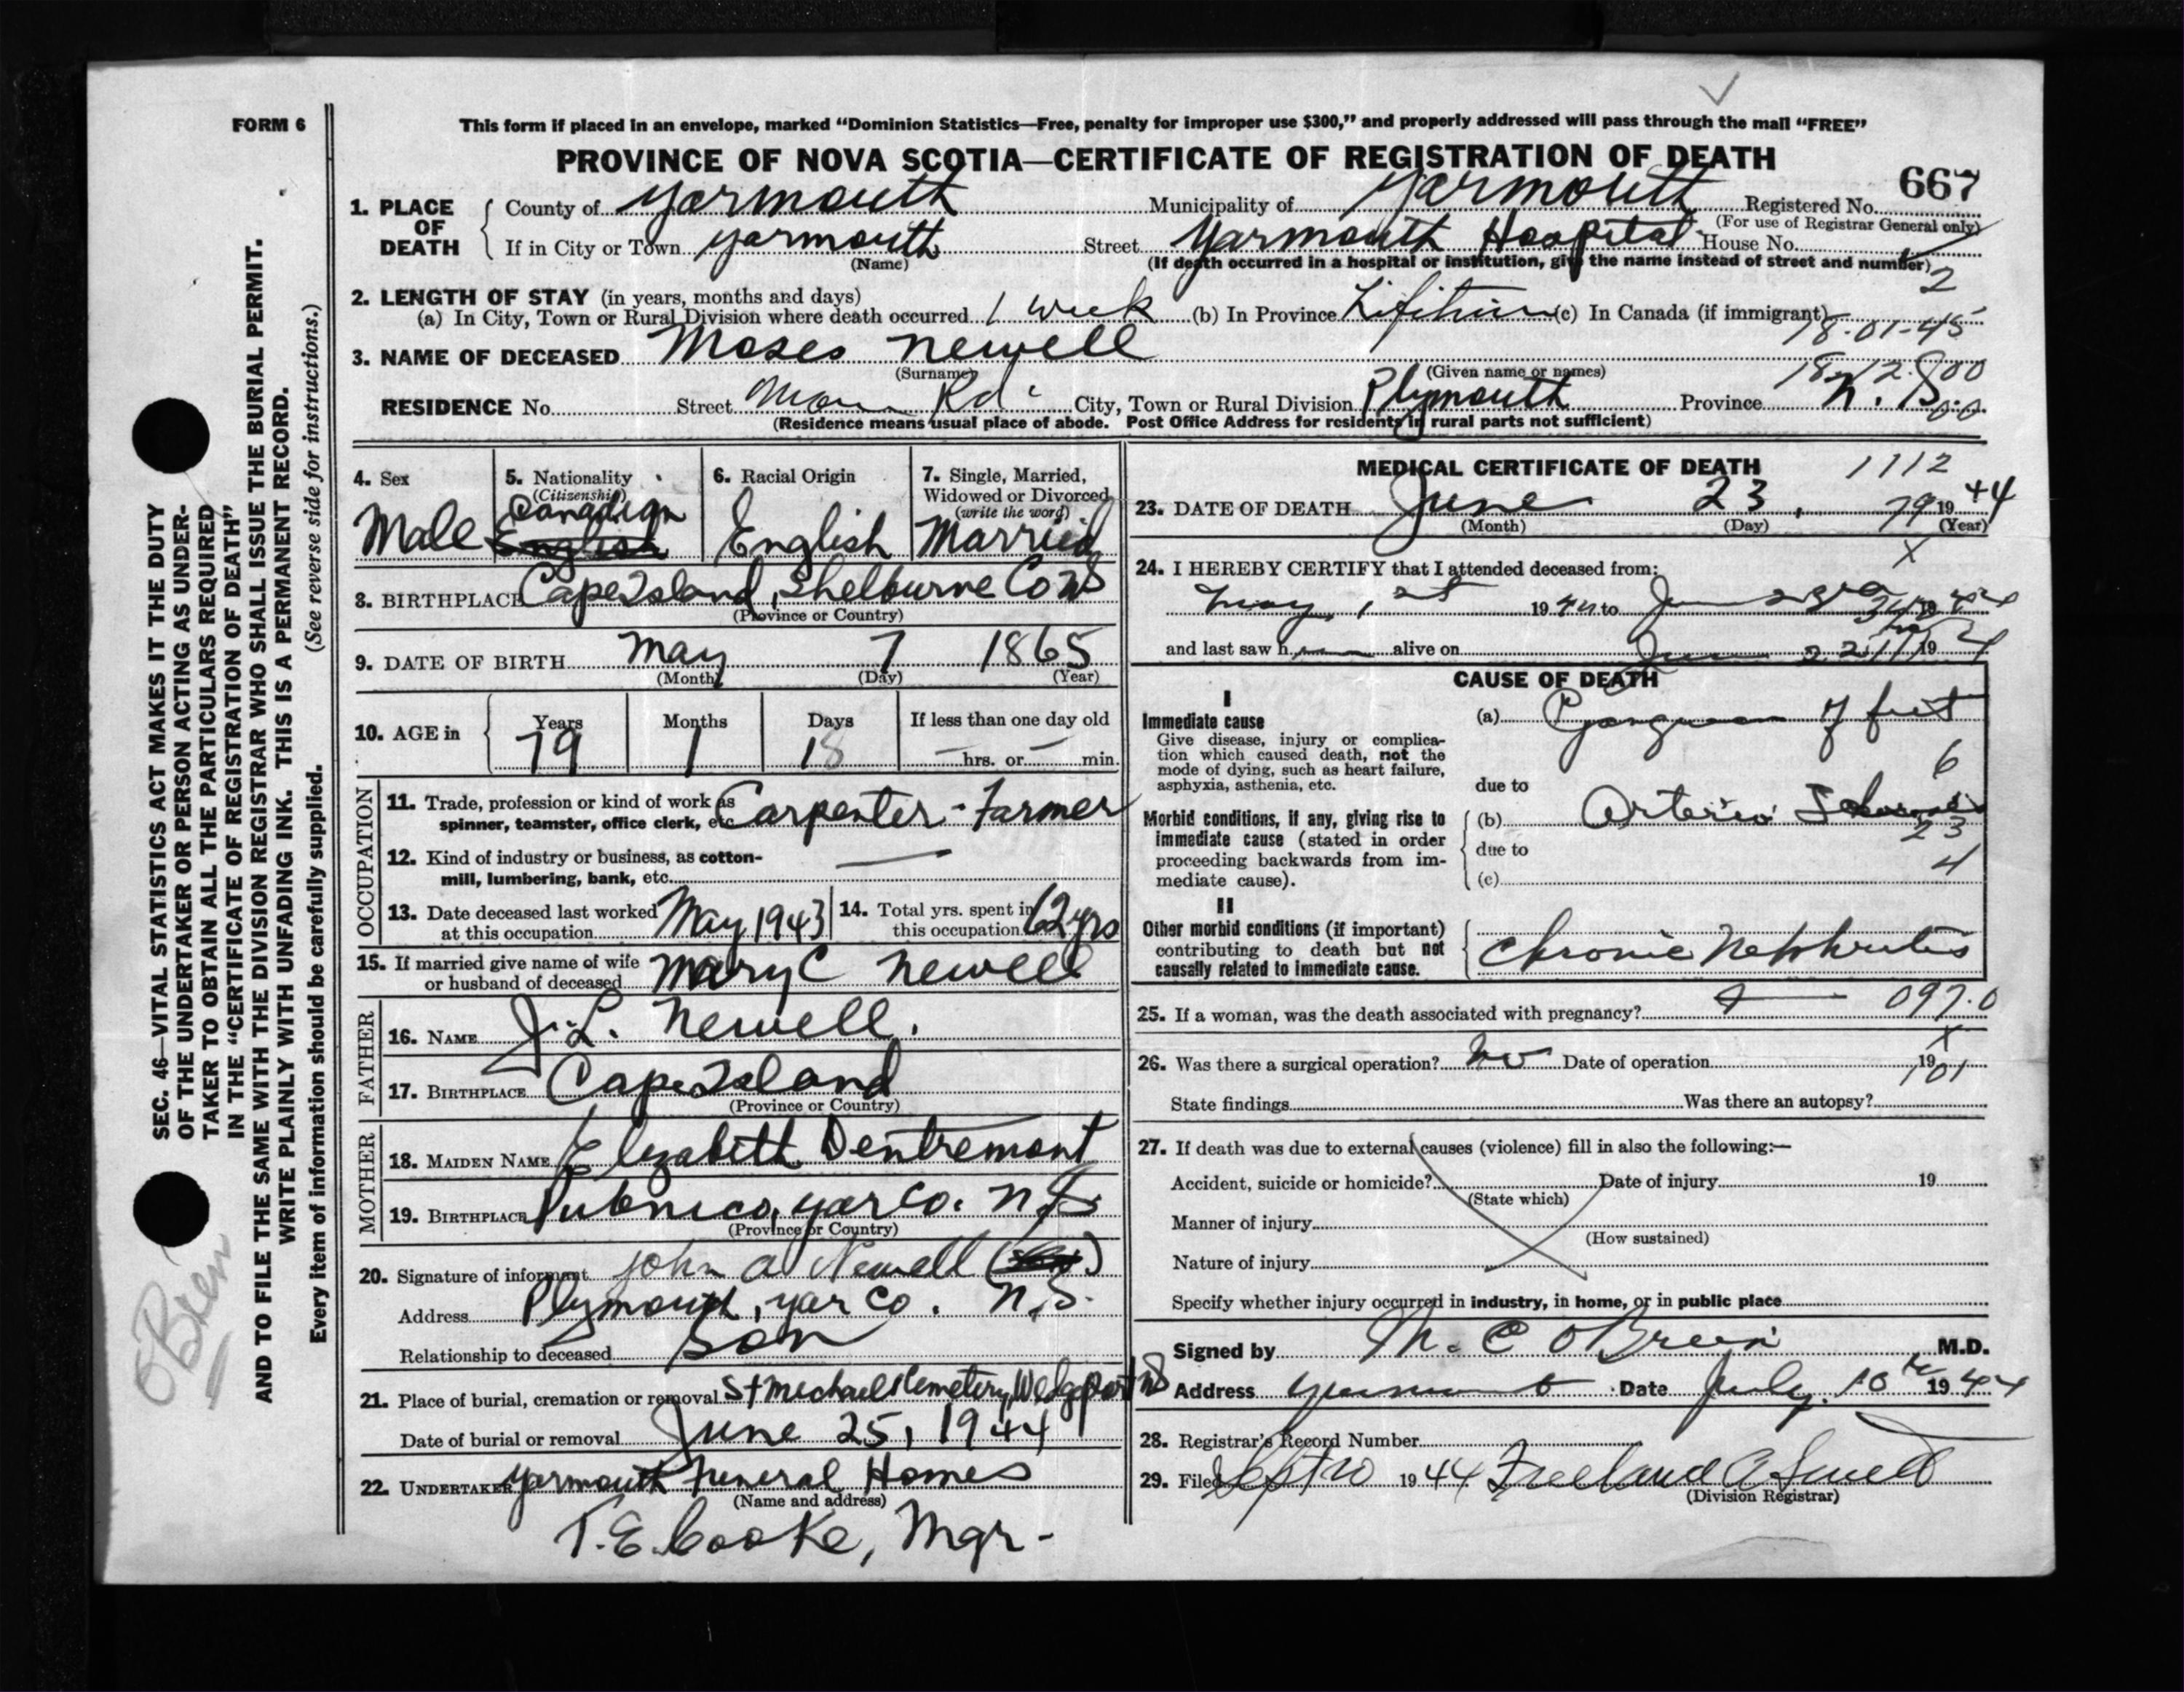 FORM 6
This form if placed in an envelope, marked “Dominion Statistics—Free, penalty for improper use $300,” and properly addressed will pass through the mail “FREE”
PROVINCE OF NOVA SCOTIA—CERTIFICATE OF REGISTRATION OF DEATH
667
1. PLACE OF DEATH
County of Yarmouth Municipality of Yarmouth Registered No.
(For use of Registrar General only)
If in City or Town Yarmouth Street Yarmouth Hospital House No.
(Name) (If death occurred in a hospital or institution, give the name instead of street and number)
2
2. LENGTH OF STAY (in years, months and days)
(a) In City, Town or Rural Division where death occurred 1 week (b) In Province Lifetime (c) In Canada (if immigrant)
18-01-45
3. NAME OF DECEASED Moses Newell
(Surname) (Given name or names)
RESIDENCE No. Street Main Rd City, Town or Rural Division Plymouth Province N.S.
(Residence means usual place of abode. Post Office Address for residents in rural parts not sufficient)
4. Sex
Male
5. Nationality
(Citizenship)
Canadian
English
6. Racial Origin
English
7. Single, Married, Widowed or Divorced
(write the word)
Married
8. BIRTHPLACE Cape Island, Shelburne Co NS
(Province or Country)
9. DATE OF BIRTH May 7 1865
(Month) (Day) (Year)
10. AGE in
Years Months Days If less than one day old
79 1 18 — hrs. or — min.
OCCUPATION
11. Trade, profession or kind of work as
spinner, teamster, office clerk, etc. Carpenter - Farmer
12. Kind of industry or business, as cotton-
mill, lumbering, bank, etc. —
13. Date deceased last worked
at this occupation May 1943
14. Total yrs. spent in
this occupation 62 yrs
15. If married give name of wife
or husband of deceased Mary C Newell
FATHER
16. NAME J. L. Newell.
17. BIRTHPLACE Cape Island
(Province or Country)
MOTHER
18. MAIDEN NAME Elizabeth Dentremont
19. BIRTHPLACE Pubnico, Yar Co. N.S.
(Province or Country)
20. Signature of informant John A Newell
Address Plymouth, Yar Co. N.S.
Relationship to deceased Son
21. Place of burial, cremation or removal St Michaels Cemetery, Wedgeport NS
Date of burial or removal June 25, 1944
22. UNDERTAKER Yarmouth Funeral Homes
(Name and address)
T. E. Cooke, Mgr-
MEDICAL CERTIFICATE OF DEATH 1112
23. DATE OF DEATH June 23, 1944
79
(Month) (Day) (Year)
X
24. I HEREBY CERTIFY that I attended deceased from:
May 1st 1944 to June 23rd 1944
and last saw h alive on June 22 1944
CAUSE OF DEATH
I
Immediate cause
Give disease, injury or complica-
tion which caused death, not the
mode of dying, such as heart failure,
asphyxia, asthenia, etc.
(a) Gangrene of feet
6
due to
Morbid conditions, if any, giving rise to
immediate cause (stated in order
proceeding backwards from im-
mediate cause).
(b) Arterio Sclerosis
23
due to
4
(c)
II
Other morbid conditions (if important)
contributing to death but not
causally related to immediate cause.
Chronic Nephritis
25. If a woman, was the death associated with pregnancy? 097.0
X
26. Was there a surgical operation? No Date of operation 19
101
State findings Was there an autopsy?
27. If death was due to external causes (violence) fill in also the following:—
Accident, suicide or homicide? Date of injury 19
(State which)
Manner of injury
(How sustained)
Nature of injury
Specify whether injury occurred in industry, in home, or in public place
Signed by M. C OBrien M.D.
Address Yarmouth Date July 10th 1944
28. Registrar's Record Number
29. Filed Sept 20 1944
(Division Registrar)
SEC. 46—VITAL STATISTICS ACT MAKES IT THE DUTY
OF THE UNDERTAKER OR PERSON ACTING AS UNDER-
TAKER TO OBTAIN ALL THE PARTICULARS REQUIRED
IN THE “CERTIFICATE OF REGISTRATION OF DEATH”
AND TO FILE THE SAME WITH THE DIVISION REGISTRAR WHO SHALL ISSUE THE BURIAL PERMIT.
WRITE PLAINLY WITH UNFADING INK. THIS IS A PERMANENT RECORD.
Every item of information should be carefully supplied. (See reverse side for instructions.)
O'Brien